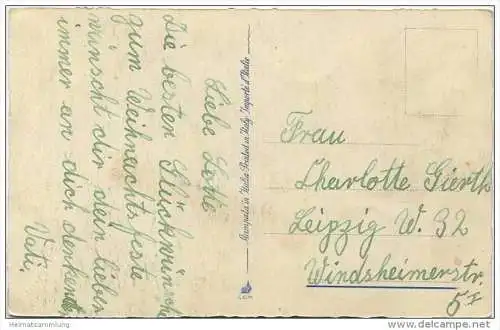 Liebe Lotte
Die besten Glückwünsche
zum Weihnachtsfeste
wünscht dir dein lieber
immer an dich denkender
Vati.
Stampata in Italia Printed in Italy Importé d'Italie
Frau
Charlotte Gierth
Leipzig W. 32
Windsheimerstr.
5 I
Heimatsammlung
www.heimatsammlung.de